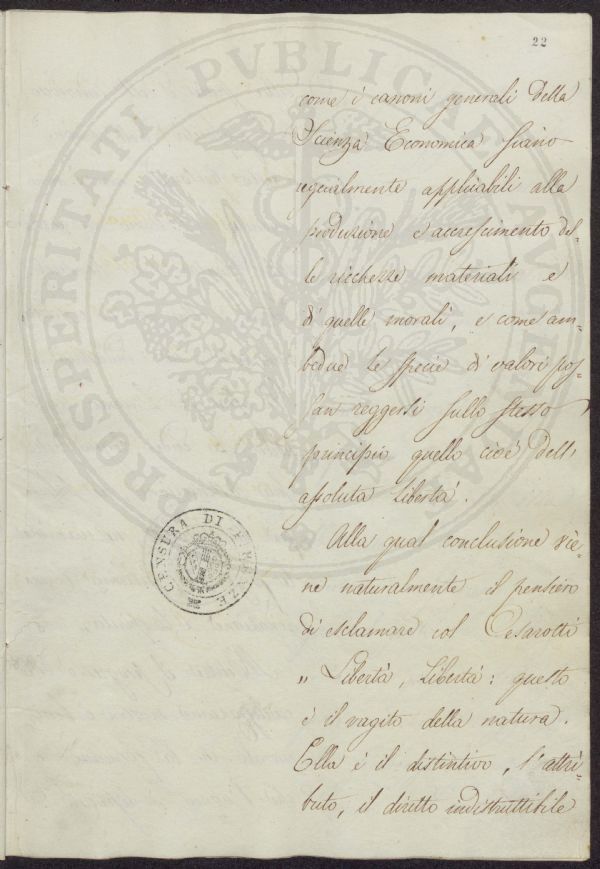 22
come i canoni generali della
Scienza Economica siano
egualmente applicabili alla
produzione e accrescimento del=
le ricchezze materiali e
di quelle morali, e come am=
bedue le specie di valori pos=
san reggersi sullo stesso
principio quello cioè dell'
assoluta Libertà.
Alla qual conclusione vie=
ne naturalmente il pensiero
di esclamare col Cesarotti
„ Libertà, Libertà: questo
è il vagito della natura.
Ella è il distintivo, l'attri=
buto, il diritto indistruttibile
CENSURA DI FIRENZE
PROSPERITATI PUBLICAE AUGENDAE